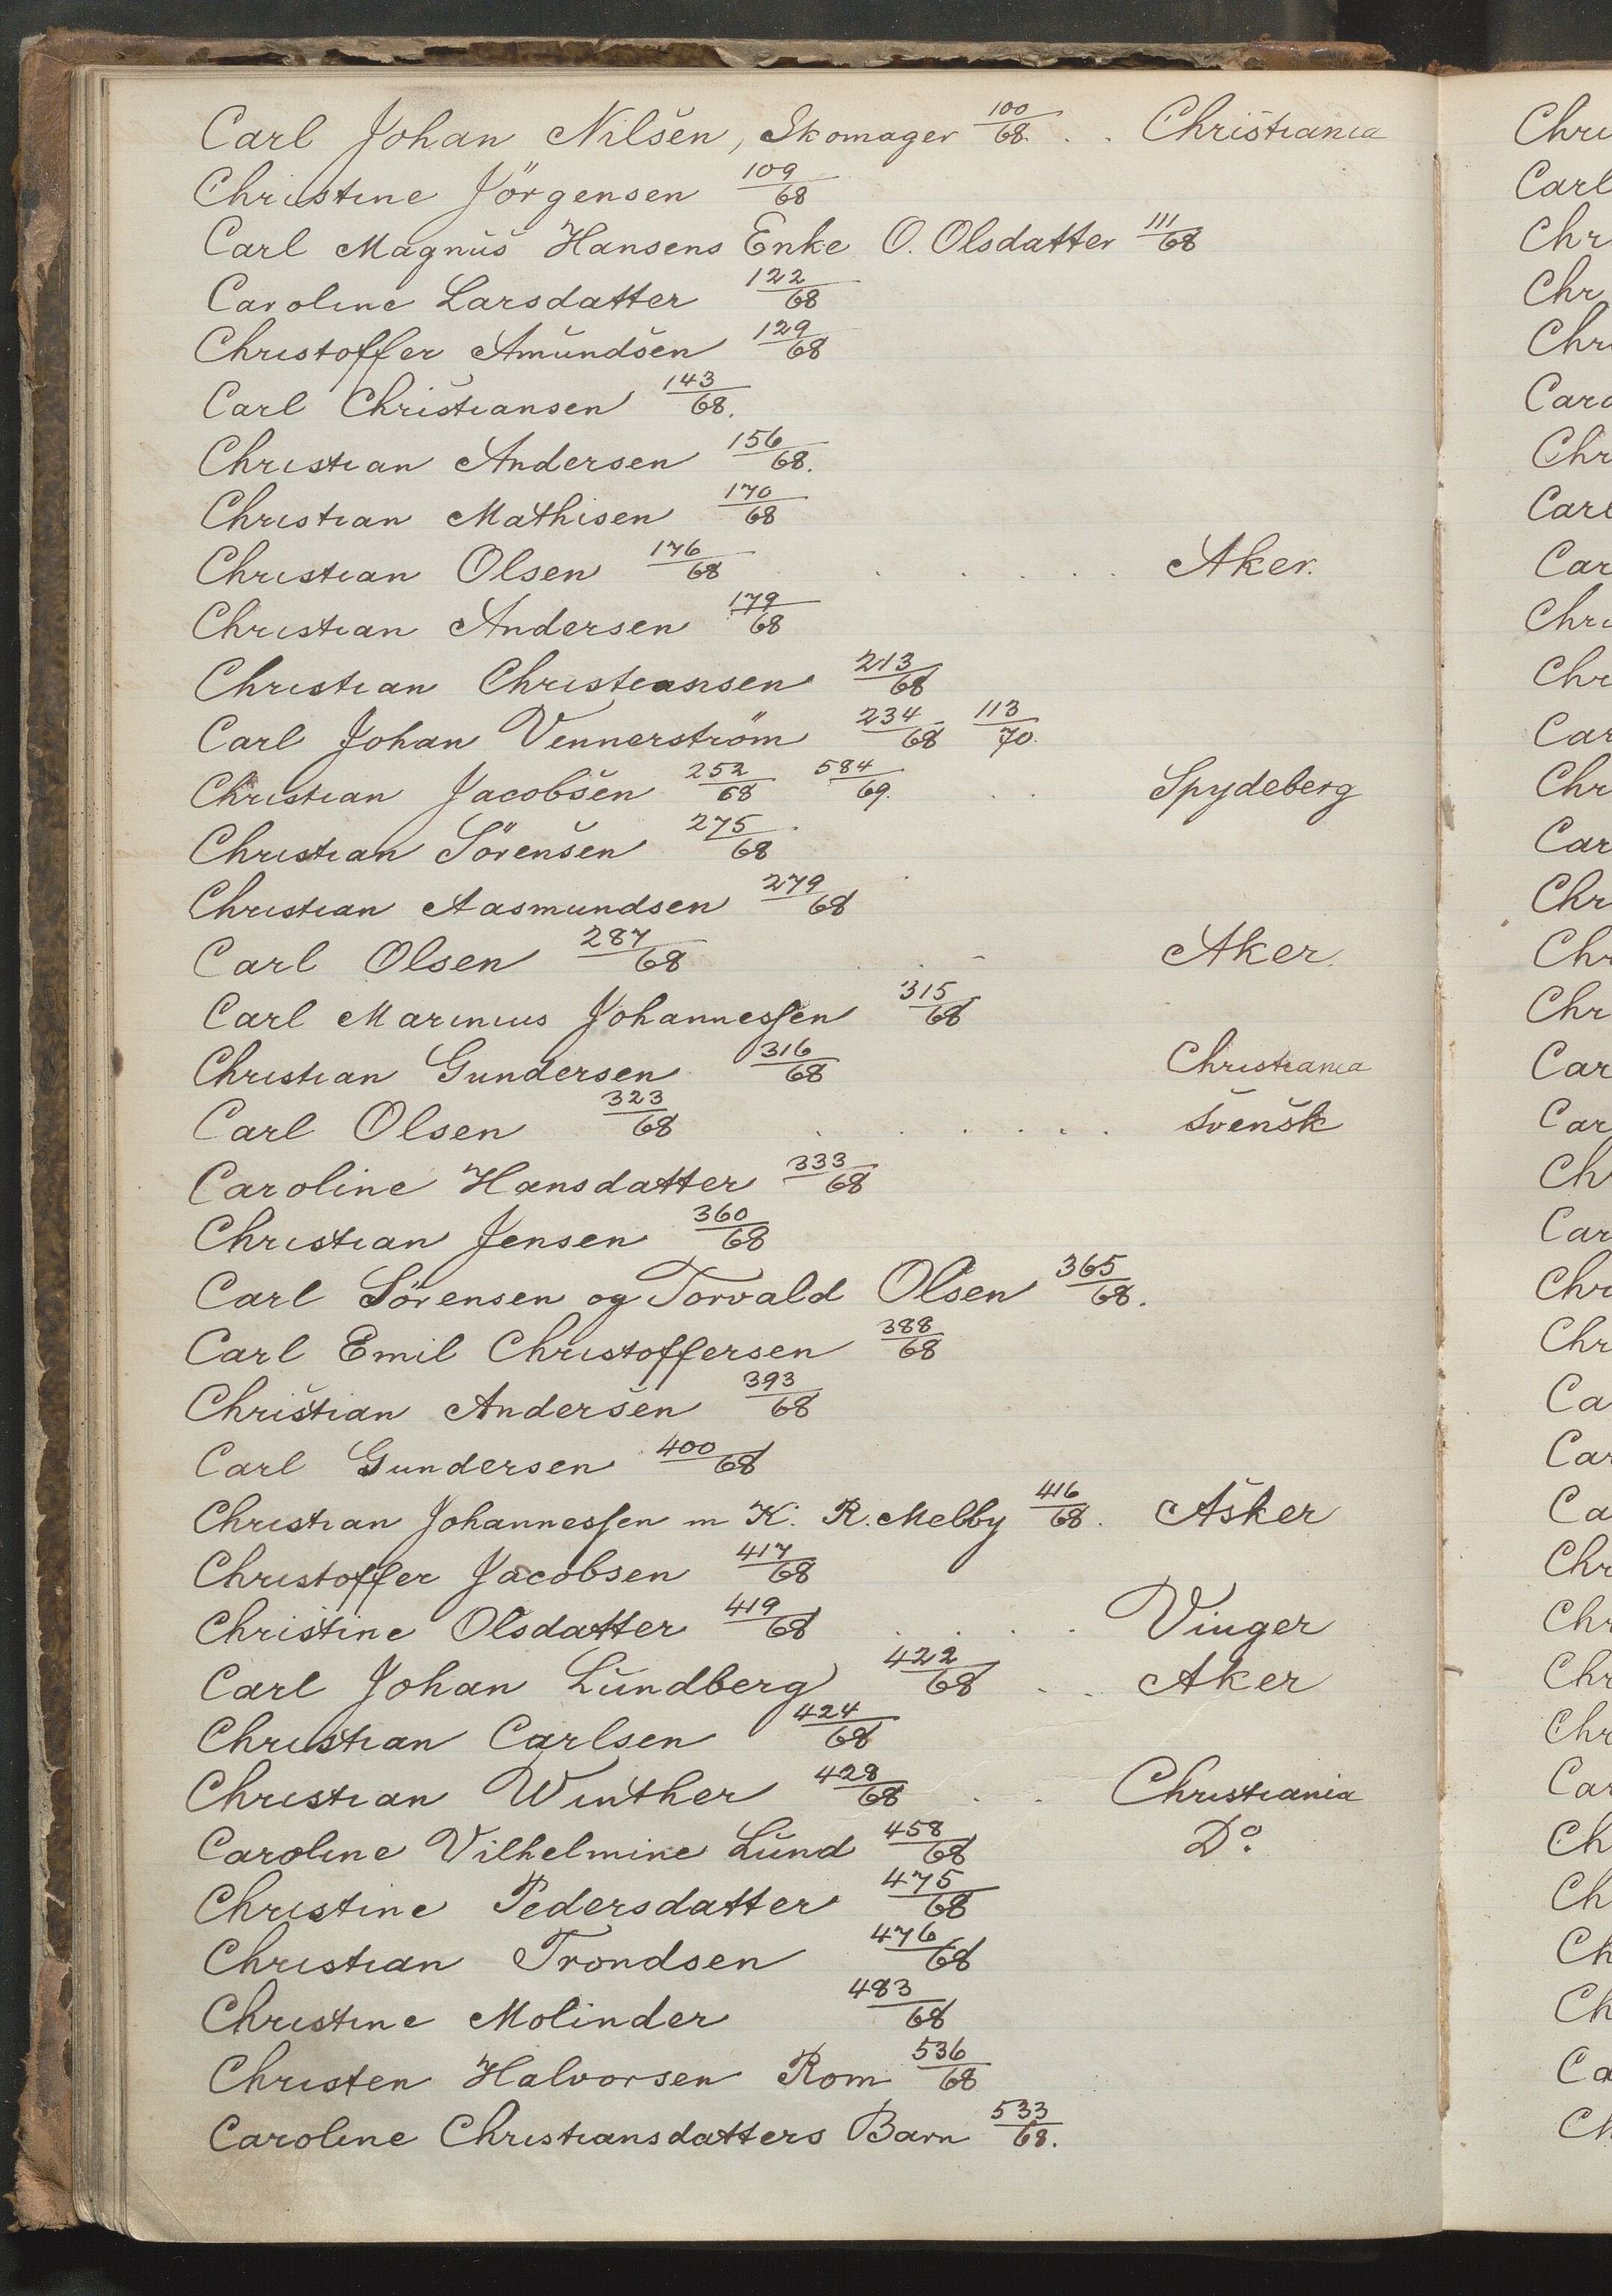 Carl Johan Nilsen, Skomager 100/68. . . Christiania
Christine Jörgensen 109/68
Carl Magnus Hansens Enke O. Olsdatter 111/68
Caroline Larsdatter 122/68
Christoffer Amundsen 129/68
Carl Christiansen 143/68.
Christian Andersen 156/68.
Christian Mathisen 170/68
Christian Olsen 176/68 . . . . . . Aker.
Christian Andersen 179/68
Christian Christiansen 213/68
Carl Johan Vennerström 234/68 113/70.
Christian Jacobsen 252/68 584/69. . . Spydeberg
Christian Sörensen 275/68
Christian Aasmundsen 279/68
Carl Olsen 287/68 . . - Aker.
Carl Marinius Johannessen 315/68
Christian Gundersen 316/68 Christiania
Carl Olsen 323/68 . . . . . . svensk
Caroline Hansdatter 333/68
Christian Jensen 360/68
Carl Sörensen og Torvald Olsen 365/68.
Carl Emil Christoffersen 388/68
Christian Andersen 393/68
Carl Gundersen 400/68
Christian Johannessen m K. R. Melby 416/68. Asker
Christoffer Jacobsen 417/68
Christine Olsdatter 419/68 . . . . Vinger
Carl Johan Lundberg 422/68 . . Aker
Christian Carlsen 424/68
Christian Winther 428/68 . . Christiania
Caroline Vilhelmine Lund 458/68 Do.
Christine Pedersdatter 475/68
Christian Trondsen 476/68
Christine Molinder 483/68
Christen Halvorsen Rom 536/68
Caroline Christiansdatters Barn 533/68.